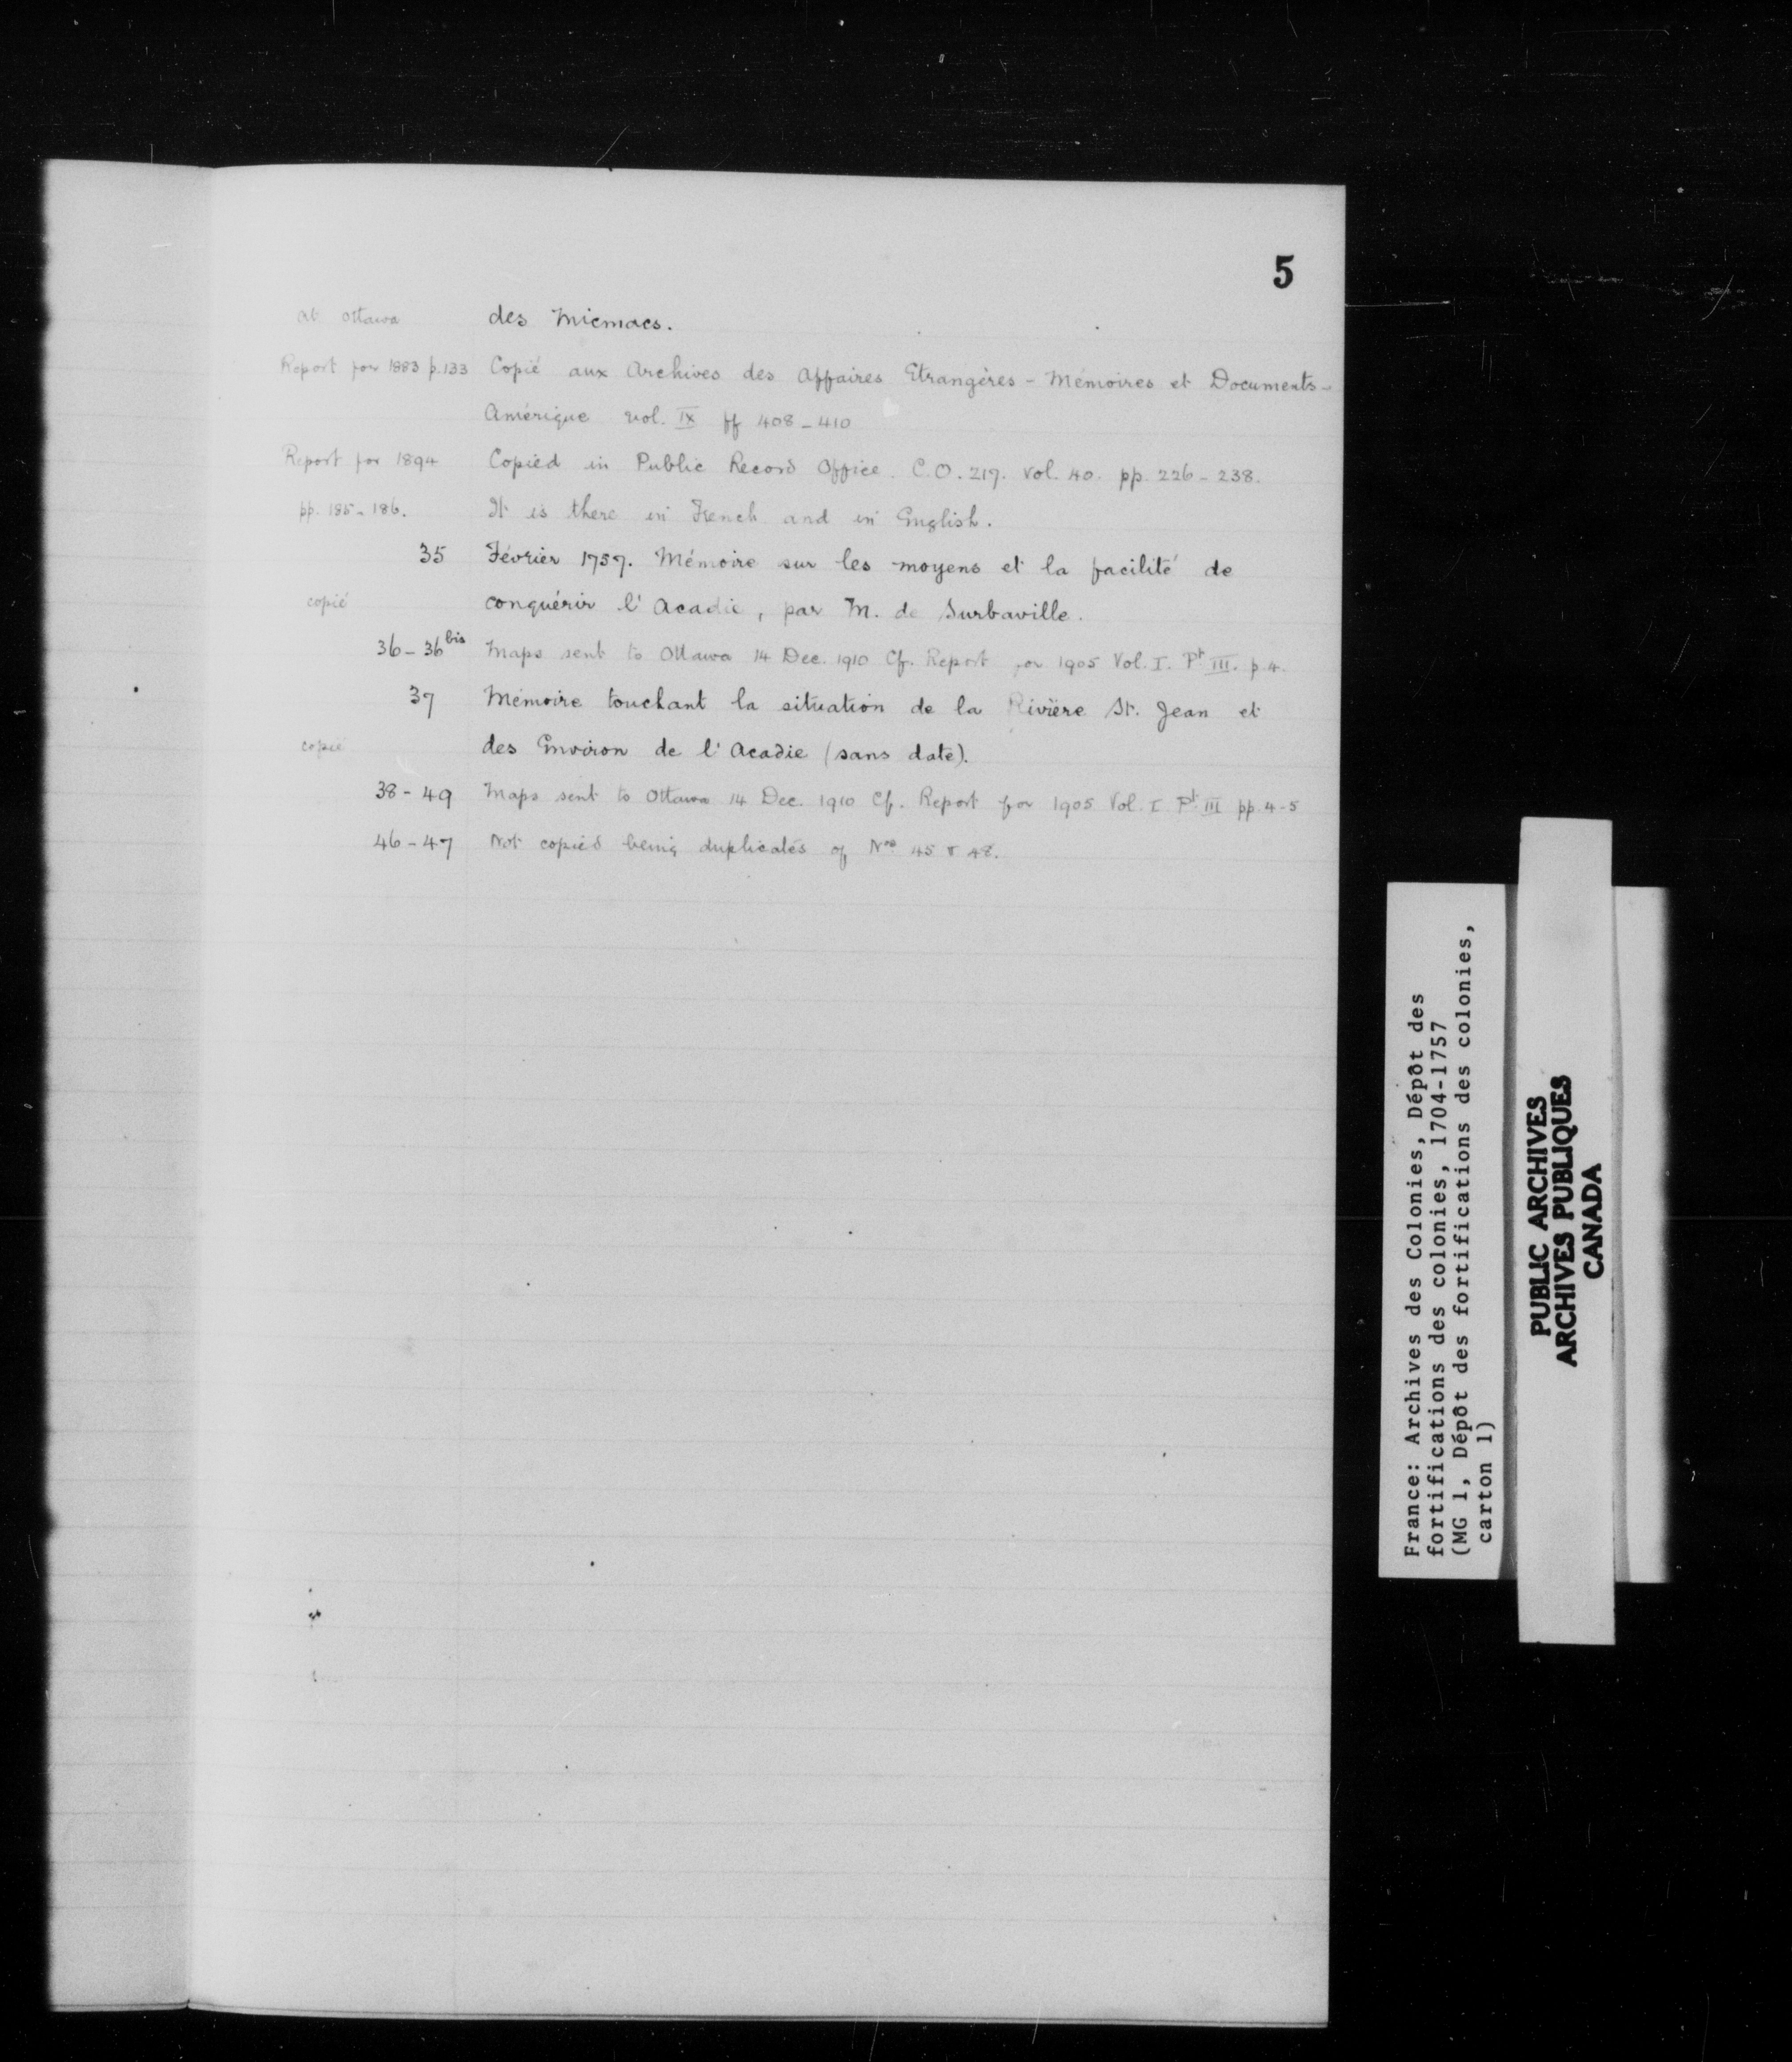 5
at Ottawa des Micmacs.
Report for 1883 p.133 Copié aux Archives des Affaires Etrangères - Mémoires et Documents -
Amérique vol. IX ff 408-410
Report for 1894 Copied in Public Record Office. C.O. 217. Vol. 40. pp. 226-238.
pp. 185-186. It is there in French and in English.
35 Février 1757. Mémoire sur les moyens et la facilité de
copié conquérir l'Acadie, par M. de Surbaville.
36-36bis Maps sent to Ottawa 14 Dec. 1910 Cf. Report for 1905 Vol. I. Pt III. p.4.
37 Mémoire touchant la situation de la Rivière St. Jean et
copié des Environ de l'Acadie (sans date).
38-49 Maps sent to Ottawa 14 Dec. 1910 Cf. Report for 1905 Vol. I Pt III pp. 4-5
46-47 Not copied being duplicates of Nos 45 & 48.
France: Archives des Colonies, Dépôt des
fortifications des colonies, 1704-1757
(MG 1, Dépôt des fortifications des colonies,
carton 1)
PUBLIC ARCHIVES
ARCHIVES PUBLIQUES
CANADA